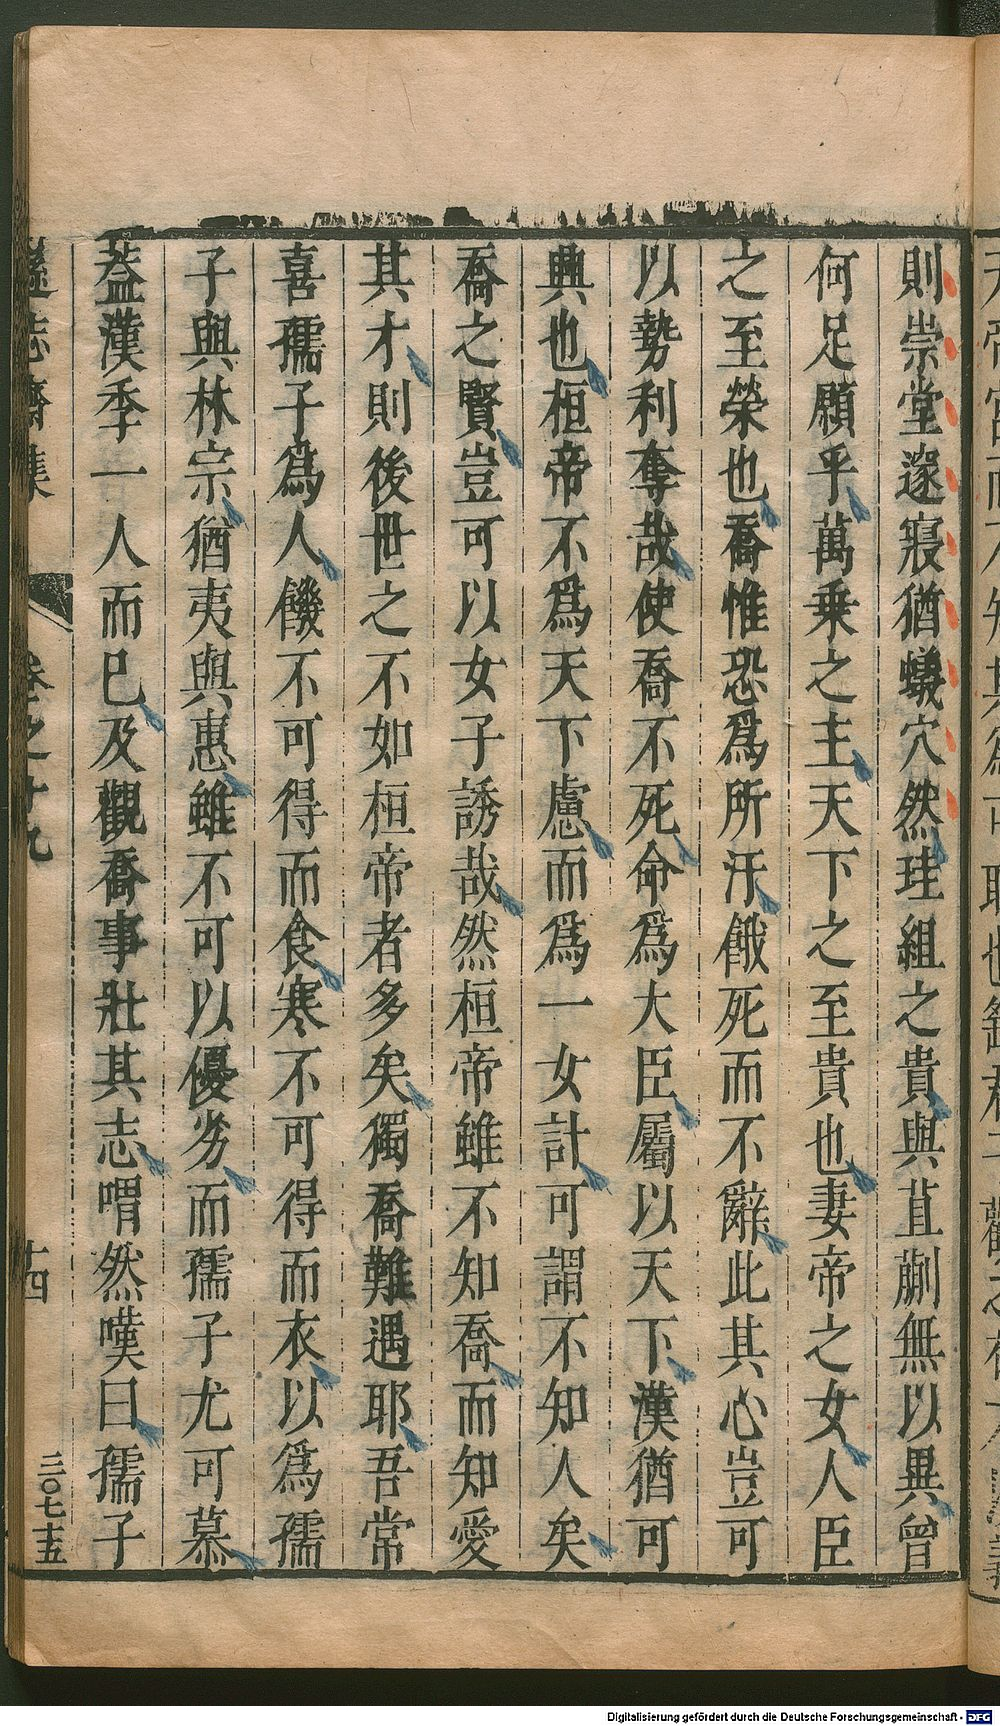 則崇堂邃寢猶蟻穴然珪組之貴與苴蒯無以異曾
何足願乎萬乗之主天下之至貴也妻帝之女人臣
之至榮也喬惟恐爲所汙餓死而不辭此其心豈可
以勢利奪哉使喬不死命爲大臣屬以天下漢猶可
興也桓帝不爲天下慮而爲一女計可謂不知人矣
喬之賢豈可以女子誘哉然桓帝雖不知喬而知愛
其才則後世之不如桓帝者多矣獨喬難遇耶吾常
喜孺子爲人饑不可得而食寒不可得而衣以爲孺
子與林宗猶夷與惠雖不可以優劣而孺子尤可慕
葢漢季一人而已及觀喬事壯其志喟然嘆曰孺子
遜志齋集
卷之十九
十四
三〇七十五
Digitalisierung gefördert durch die Deutsche Forschungsgemeinschaft - DFG